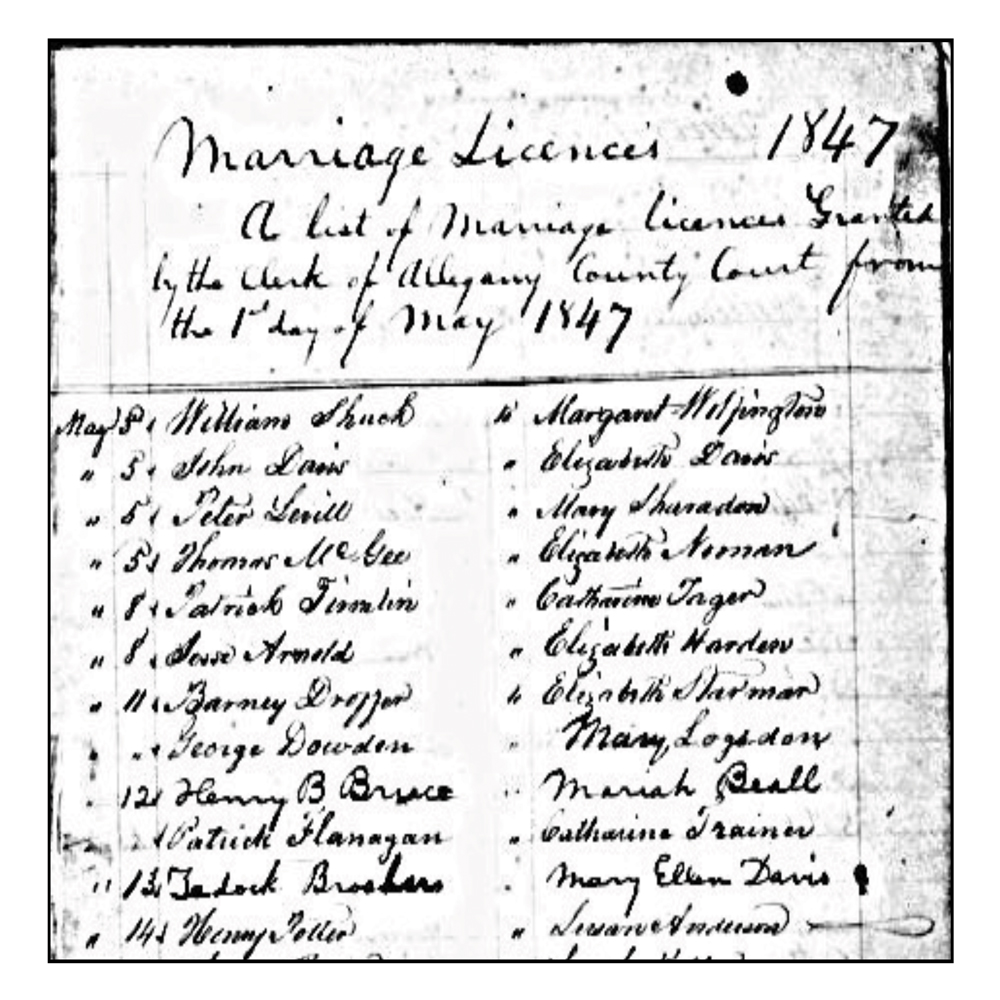 Marriage Licences 1847
A list of Marriage licences Granted
by the Clerk of Allegany County Court from
the 1st day of May 1847
May 5 William Shuck to Margaret Wilpington
" 5 John Davis " Elizabeth Davis
" 5 Peter " Mary Sharadon
" 5 Thomas McGee " Elizabeth Norman
" 8 Patrick " Catharine
" 8 Jesse Arnold " Elizabeth Harden
" 11 Barney " Elizabeth Starman
" " George Dowden " Mary Logsdon
" 12 Henry B Bruce " Mariah Beall
Patrick Flanagan " Catharine Trainer
" 13 Zadock " Mary Ellen Davis
" 14 Henry " Susan Anderson